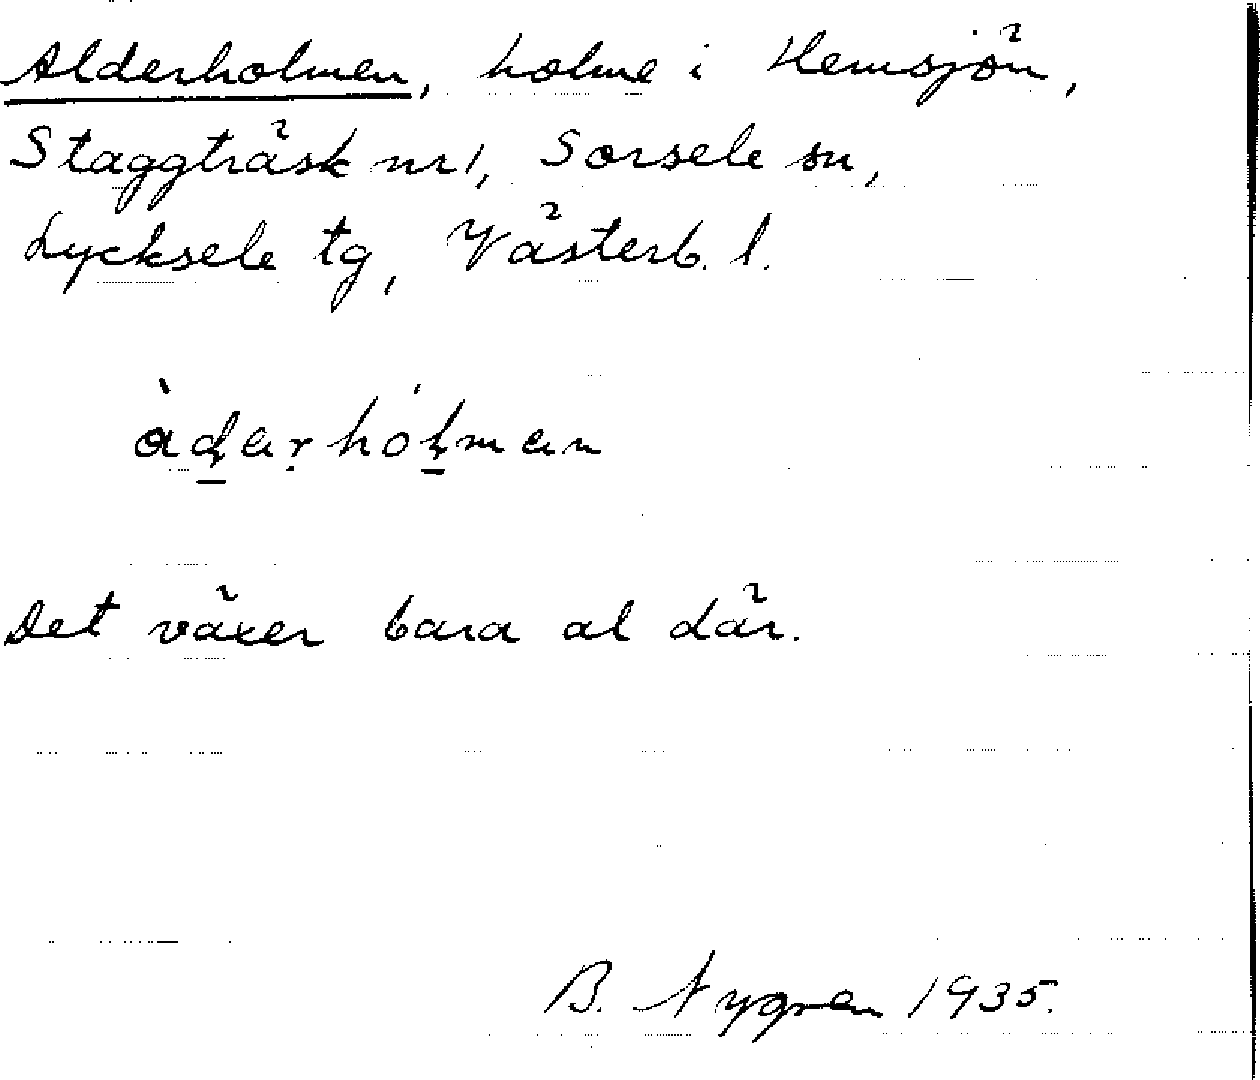 Alderholmen, holme i Hemsjön,
Staggträsk nr 1, Sorsele sn,
Lycksele tg, Västerb. l.
Det växer bara al där.
B. Nygren 1935.